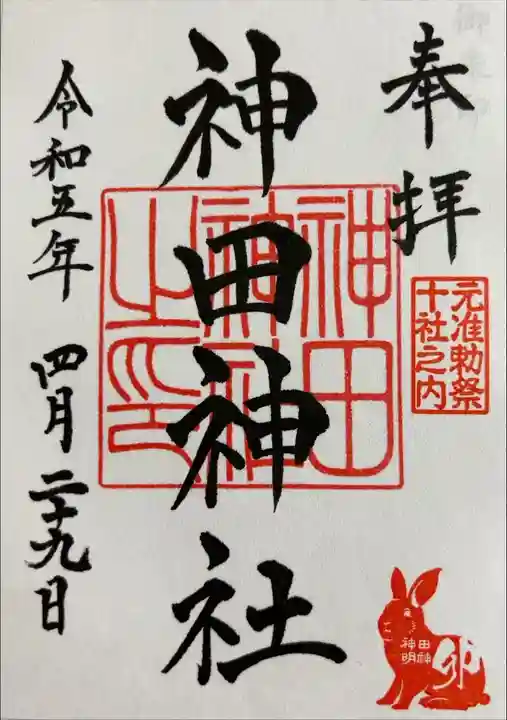 奉拝
元准勅祭
十社之内
神田神社
神田
神社
之印
令和五年 四月二十九日
卯
神田
神明